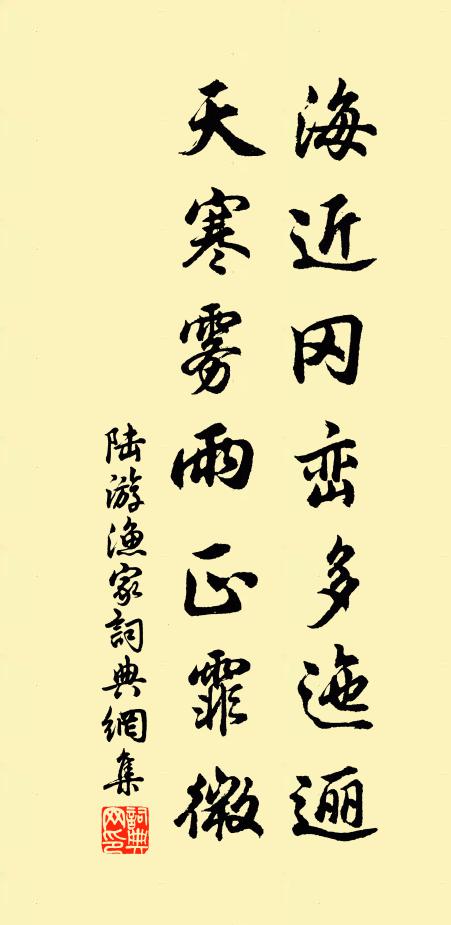 海近冈峦多迤逦
天寒雾雨正霏微
陆游渔家词典網集
詞典网印